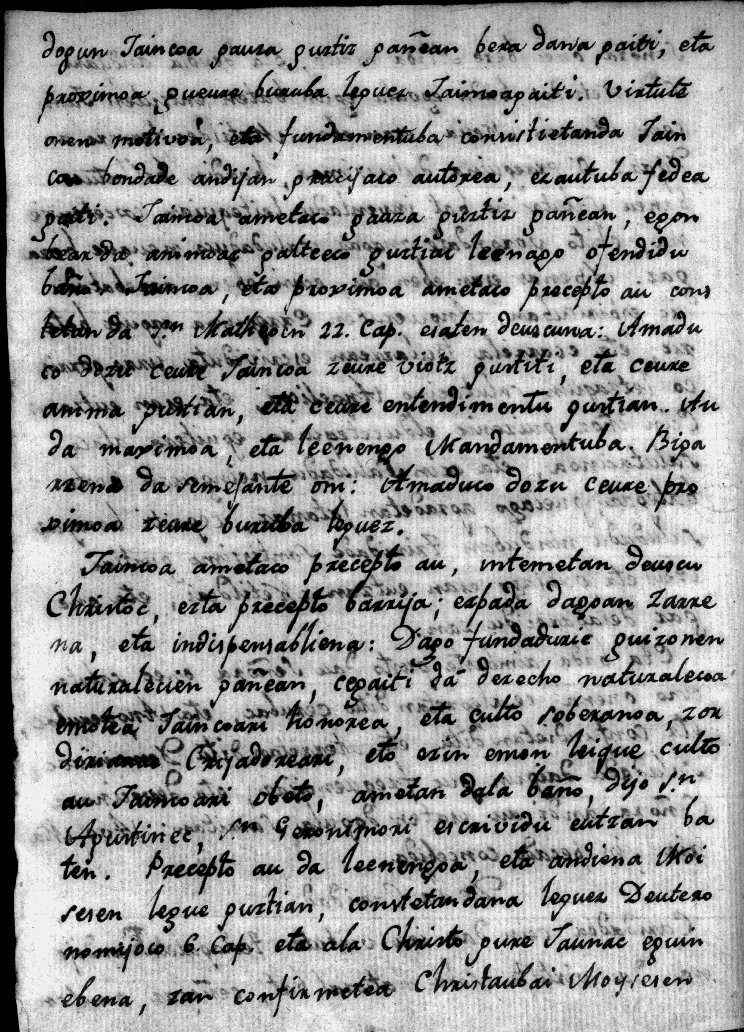 dogun Taincoa gauza guztiz gañean bera dana gaiti, eta
proximoa, gueure buruba leguez Taincoagaiti. Virtute
onen motivoa, eta fundamentuba consistietanda Tain
coa bondade andijan, graciaco autorea, ezautuba fedea
gaiti. Taincoa ametaco gauza guztiz gañean, egon
bear da animoaz galteeco guztiac leenago ofendidu
baño Taincoa, eta proximoa ametaco precepto au cons
tetan da Sn. Matheoin 22. Cap. esaten deuscuna: Amadu
co dozu ceure Taincoa zeure viotz guztiti, eta ceure
anima guztian, eta ceure entendimentu guztian. Au
da maximoa, eta leenengo Mandamentuba. Biga
rrena da semejante oni: Amaduco dozu ceure pro
ximoa zeure buruba leguez.
Taincoa ametaco precepto au, intemetan deuscu
Christoc, ezta precepto barrija; ezpada dagoan zarre
na, eta indispensabliena: Dago fundadurie guizonen
naturalecien gañean, cegaiti da derecho naturalecoa
emotea Taincoari honorea, eta culto soberanoa, zor
Crijadoreari, eta ezin emon leique culto
au Taincoari obeto, ametan dala baño, dijo Sn.
Agustinec, Sn. Geronimori escrividu eutzan ba
ten. Precepto au da leenengoa, eta andiena Moi
sesen legue guztian, constetandana leguez Deutero
nomijoco 6. Cap. eta ala Christo gure Jaunac eguin
ebena, zan confirmetea Christaubai Moysesen